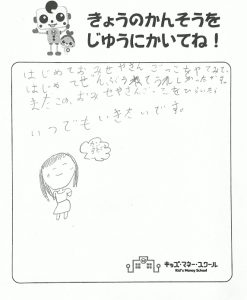 きょうのかんそうを
じゆうにかいてね！
はじめておみせやさんごっこをやてみて、
はじめてぜんぶうれてうれしかったです。
またこの、おみせやさんごっこをひらいたら
いつでもいきたいです。
キッズ・マネー・スクール
Kid's Money School